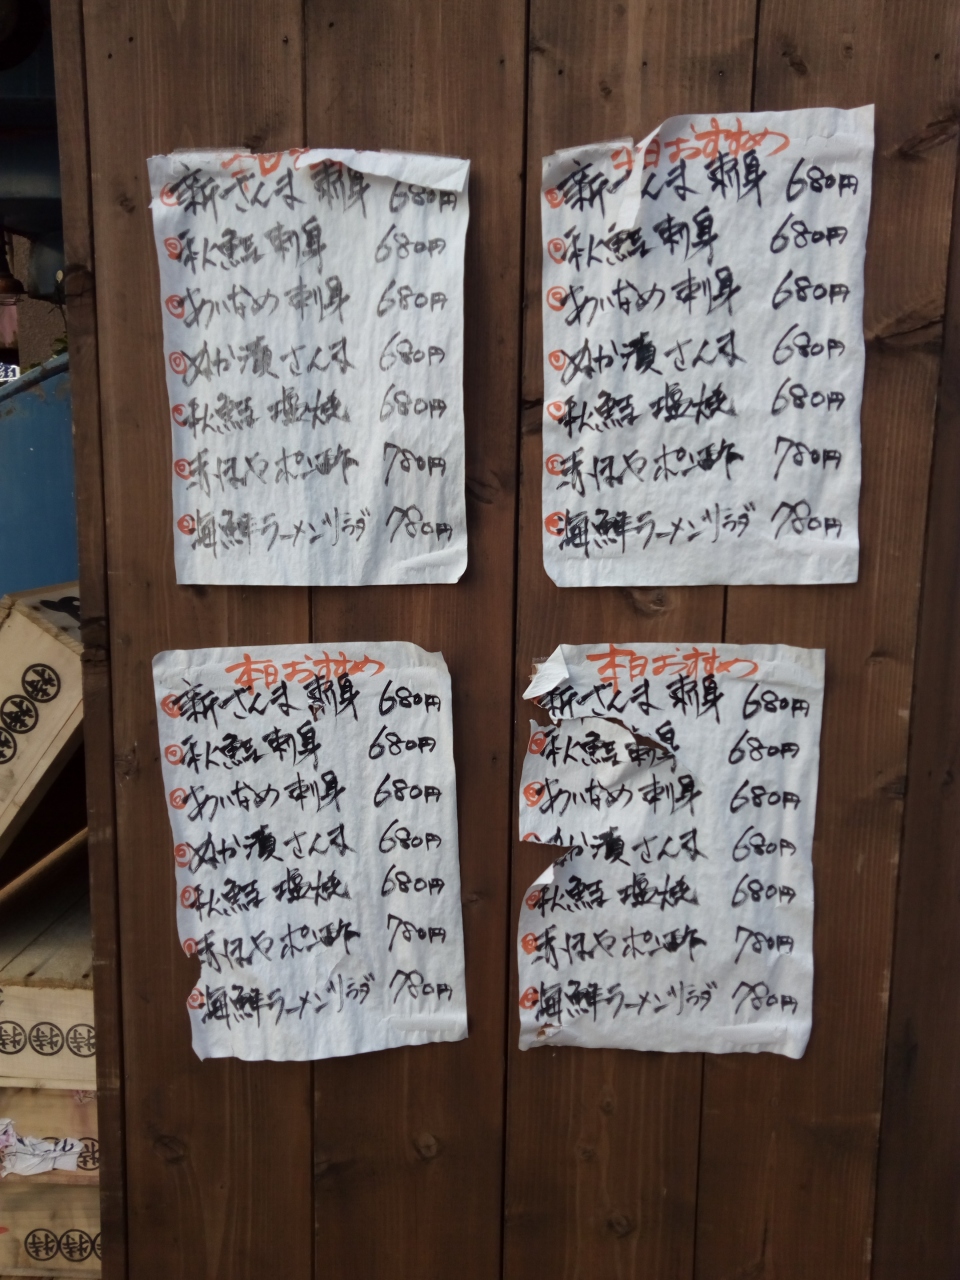 新さんま 刺身 680円
◎秋鮭 刺身 680円
◎あいなめ 刺身 680円
◎ぬか漬 さんま 680円
◎秋鮭 塩焼 680円
◎赤ほや ポン酢 780円
◎海鮮ラーメンサラダ 780円
本日おすすめ
◎新さんま 刺身 680円
◎秋鮭 刺身 680円
◎あいなめ 刺身 680円
◎ぬか漬 さんま 680円
◎秋鮭 塩焼 680円
◎赤ほや ポン酢 780円
◎海鮮ラーメンサラダ 780円
本日おすすめ
◎新さんま 刺身 680円
◎秋鮭 刺身 680円
◎あいなめ 刺身 680円
◎ぬか漬 さんま 680円
◎秋鮭 塩焼 680円
◎赤ほや ポン酢 780円
◎海鮮ラーメンサラダ 780円
本日おすすめ
新さんま 刺身 680円
◎秋鮭 刺身 680円
◎あいなめ 刺身 680円
ぬか漬 さんま 680円
◎秋鮭 塩焼 680円
◎赤ほや ポン酢 780円
◎海鮮ラーメンサラダ 780円
特特特
特特特
特
特特特